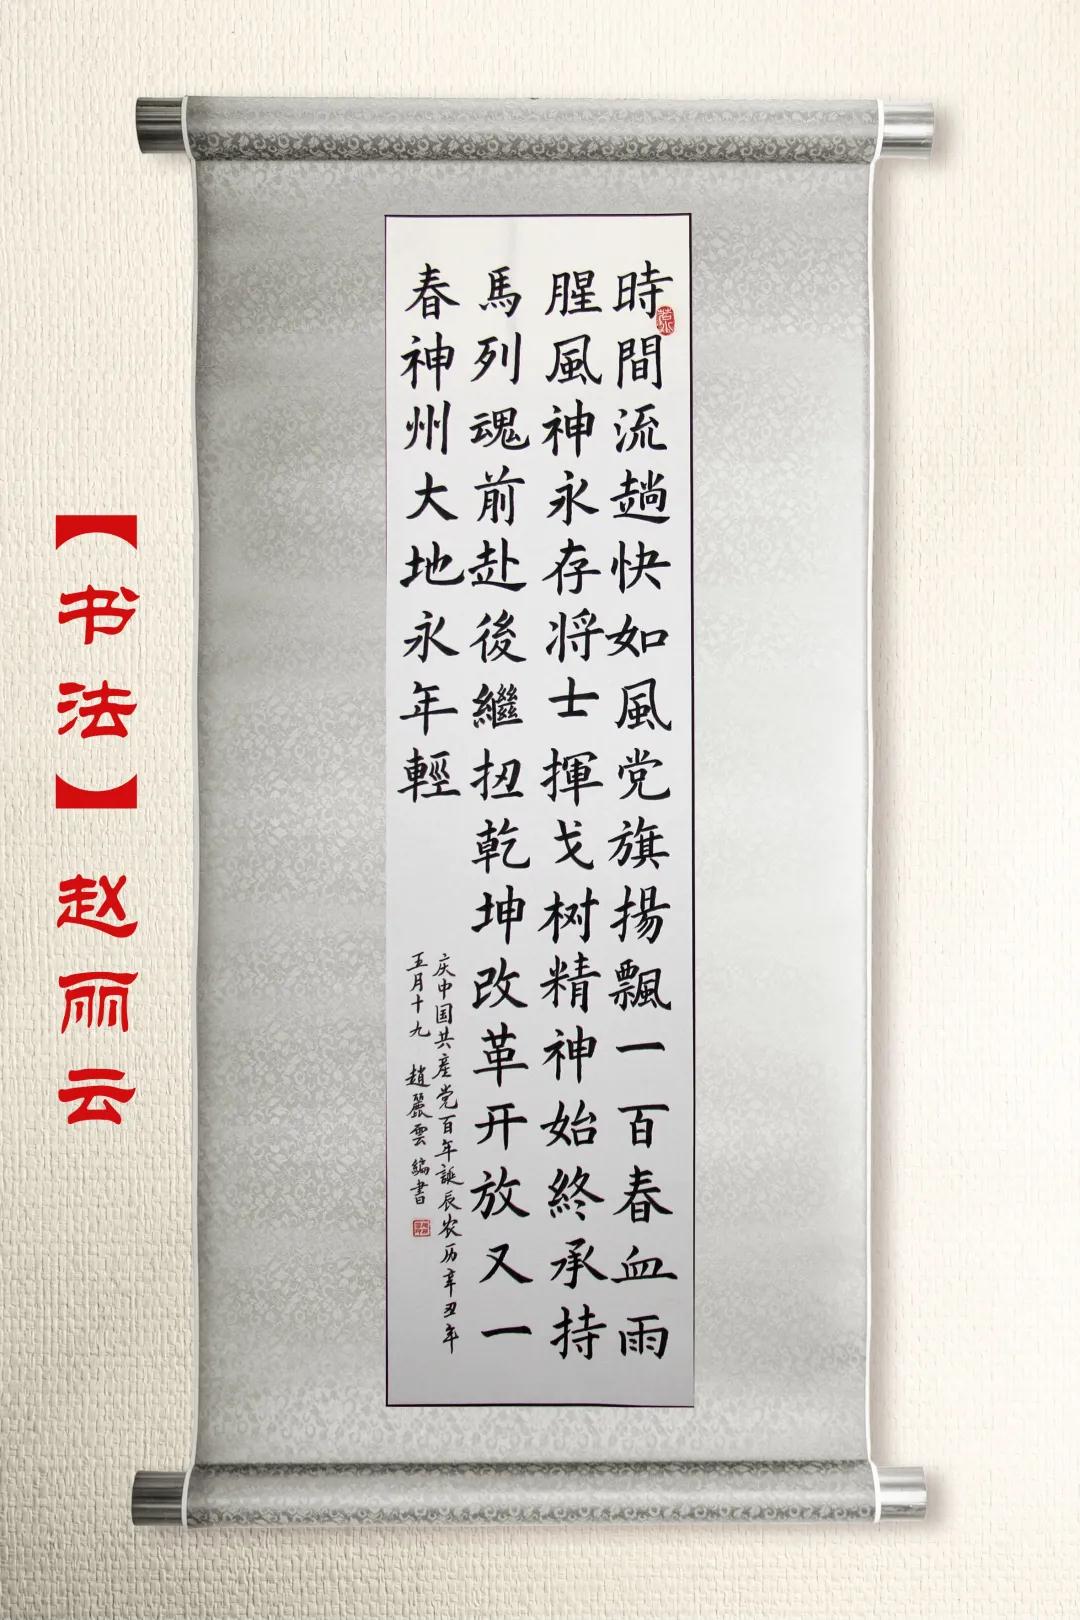 【书法】赵丽云
時間流趟快如風党旗揚飄一百春血雨
腥風神永存将士揮戈树精神始終承持
馬列魂前赴後繼扭乾坤改革开放又一
春神州大地永年輕
庆中国共産党百年誕辰农历辛丑年
五月十九 趙麗雲編書